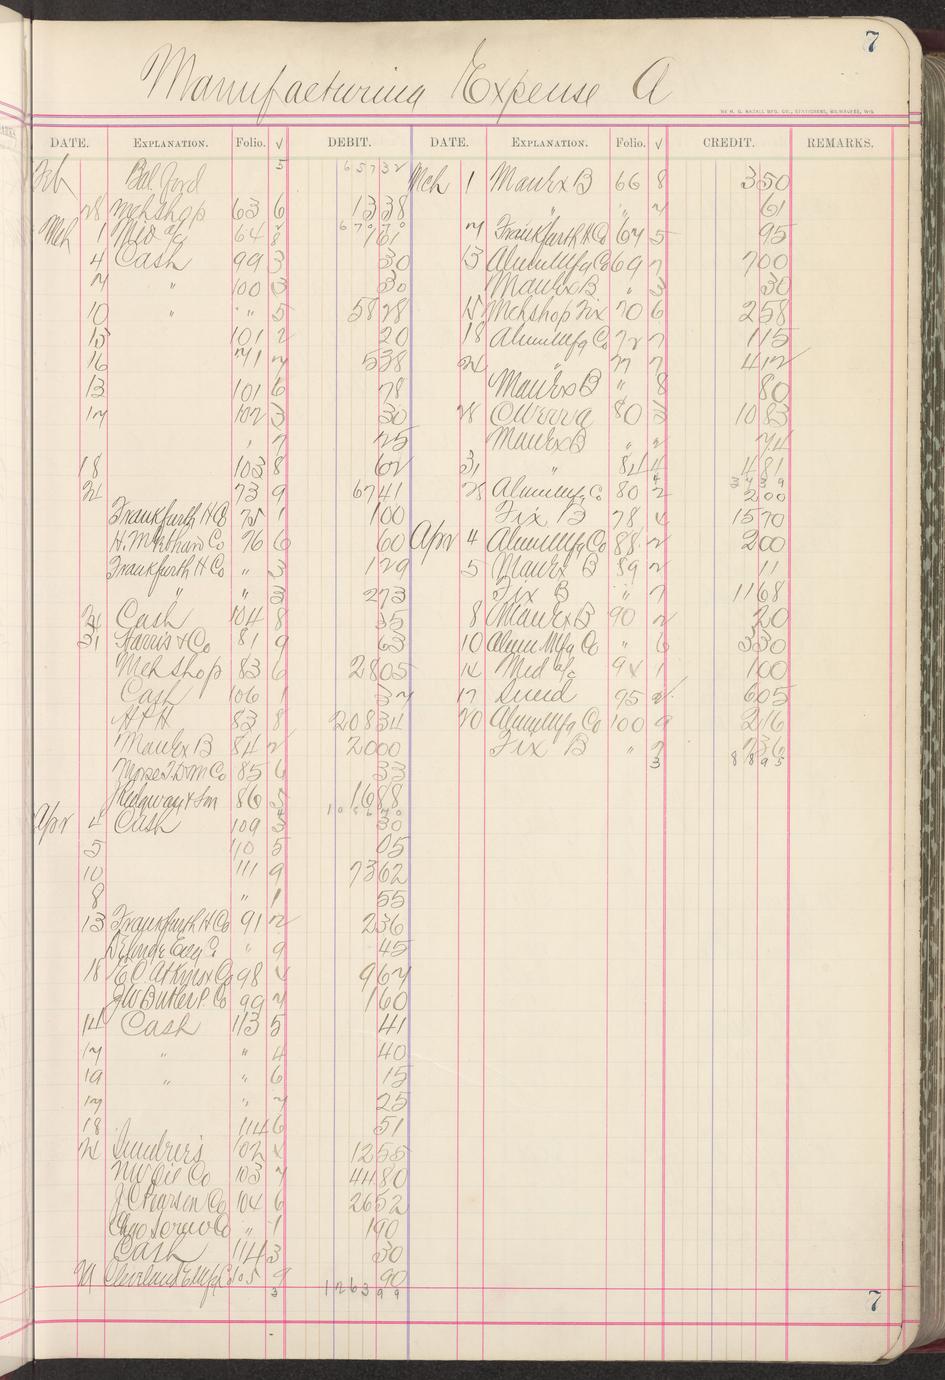 7
Manufacturing Expense A
DATE. EXPLANATION. Folio. √ DEBIT. DATE. EXPLANATION. Folio. √ CREDIT. REMARKS.
Feb Bal. ford 5 65732 Mch 1 Manex B 66 8 350
28 Mchshop 63 6 1338 " " 7 61
Mch 1 Md a/c 64 8 161 7 Frankfurth H Co 67 5 95
4 Cash 99 3 30 13 Alum Mfg Co 69 7 700
7 " 100 3 30 Manex B " 3 30
10 " " 5 5828 15 Mchshop Fix 70 6 258
15 101 2 20 18 Alum Mfg Co 72 7 115
16 71 7 538 24 " 77 7 412
13 101 6 78 Manex B " 8 80
17 102 3 30 28 80 3 1083
" 7 25 Manex B " 2 74
18 103 8 62 31 " 84 4 481
24 73 9 6741 28 Alum Mfg Co 80 2 200
Frankfurth H Co 75 1 100 Fix B 78 4 1570
76 6 60 Apr 4 Alum Mfg Co 88 2 200
Frankfurth H Co " 3 129 5 Manex B 89 2 11
" " 3 273 Fix B " 7 1168
24 Cash 104 8 35 8 Manex B 90 2 20
31 Harris & Co 81 9 63 10 Alum Mfg Co " 6 330
Mch shop 83 6 2805 14 Md a/c 94 1 100
Cash 106 1 37 17 Sund 95 2 605
H P H 83 8 20834 20 Alum Mfg Co 100 9 216
Manex B 84 2 2000 Fix B " 7 236
Morse T. D. M Co 85 6 33 3 8895
Ridgway & Son 86 5 1688
Apr 4 Cash 109 3 30
5 110 5 05
10 111 9 7362
8 " 1 55
13 Frankfurth H Co 91 2 236
" 9 45
18 E C Atkins & Co 98 4 967
J W Butler P. Co 99 7 160
14 Cash 113 5 41
17 " " 4 40
19 " " 6 15
17 " 7 25
18 114 6 51
24 Sundries 102 4 1255
NW Oil Co 103 7 4480
J C Pearson Co 104 6 2652
Chgo Screw Co " 1 190
Cash 114 3 30
Cleveland Mfg Co 105 9 90
3 126399
7